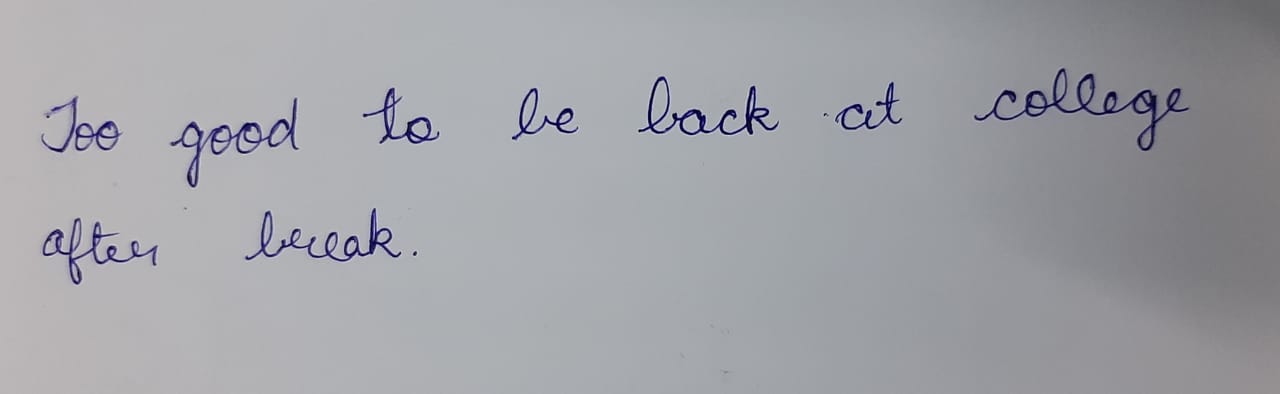 Too good to be back at college
after break.